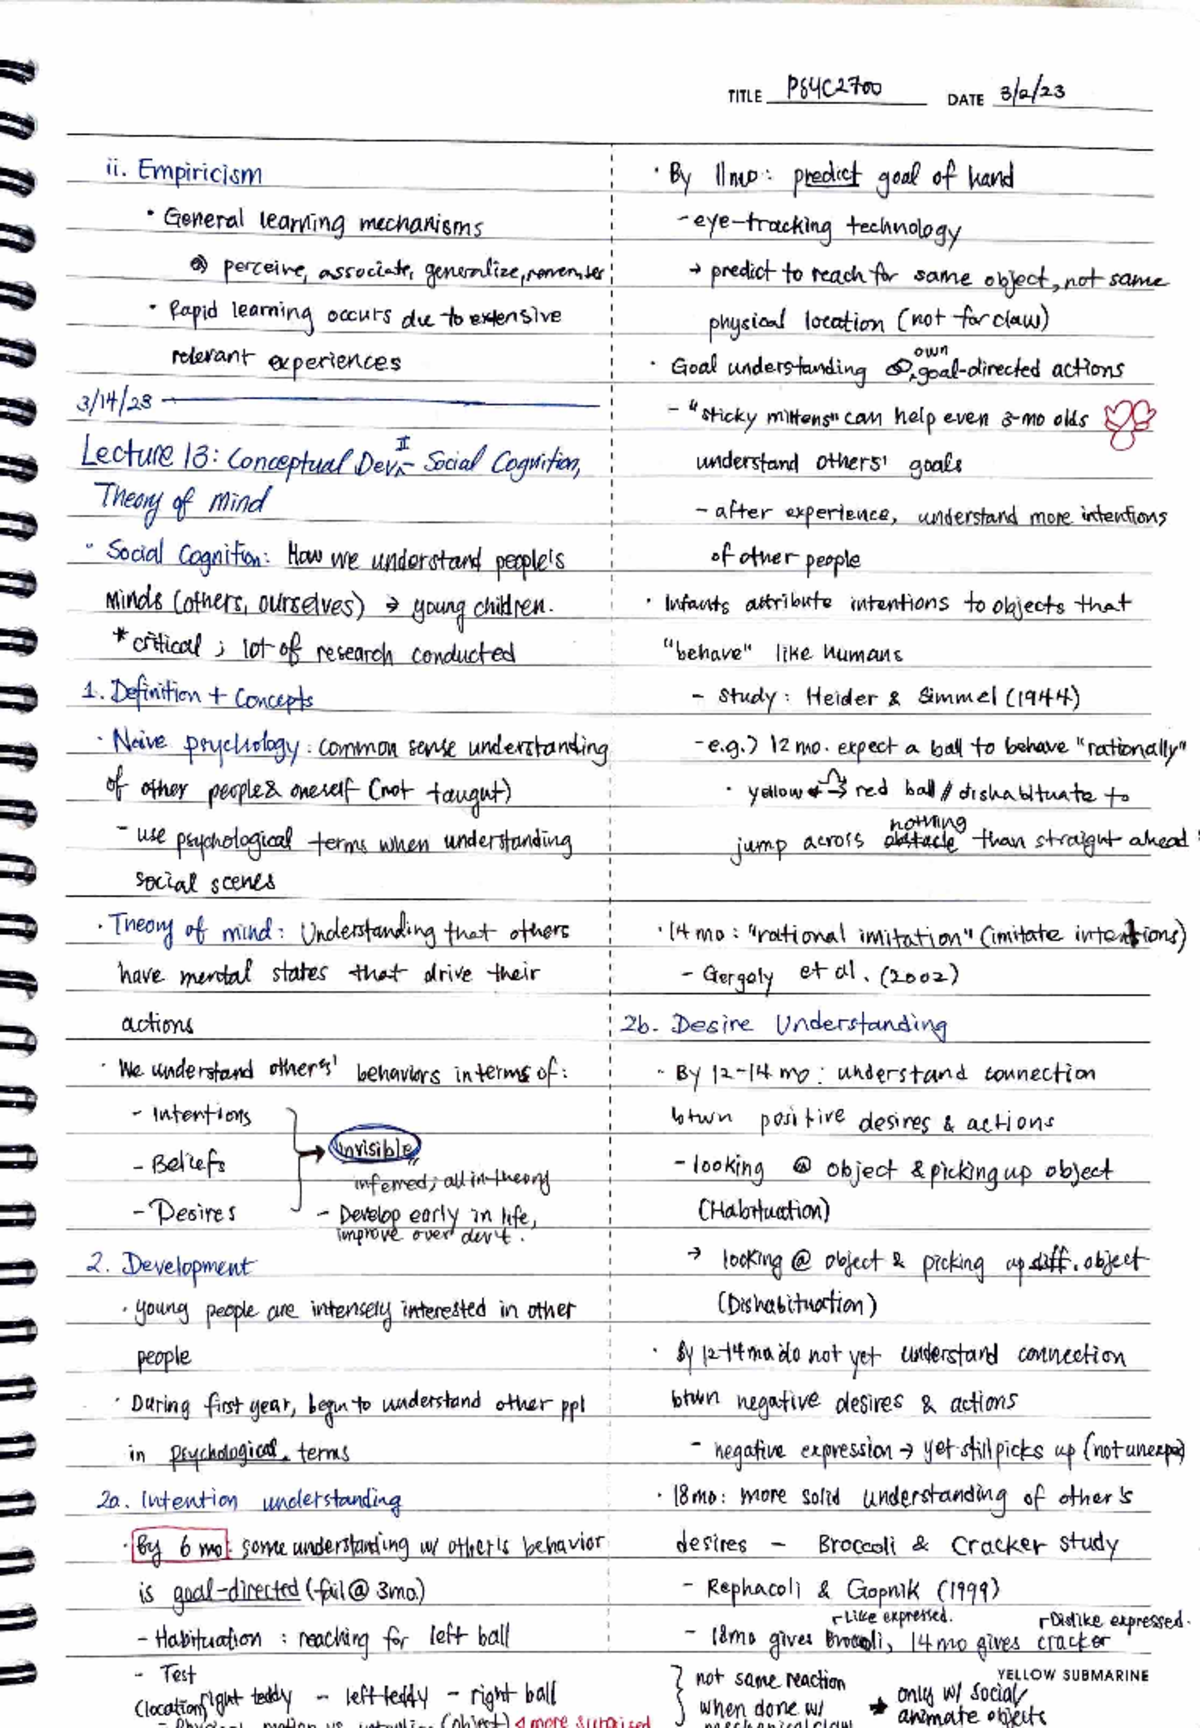 TITLE PSYC2700 DATE 3/2/23
ii. Empiricism
• General learning mechanisms
perceive, associate, generalize, remember
• Rapid learning occurs due to extensive
relevant experiences
3/14/23
Lecture 13: Conceptual Dev. II - Social Cognition,
Theory of mind
• Social Cognition: How we understand people's
minds (others, ourselves) → young children.
* critical ; lot of research conducted
1. Definition + Concepts
• Naive psychology: common sense understanding
of other people & oneself (not taught)
- use psychological terms when understanding
social scenes
• Theory of mind: Understanding that others
have mental states that drive their
actions
• We understand others' behaviors in terms of:
- Intentions
- Beliefs
- Desires
invisible
inferred; all in-theory
- Develop early in life,
improve over dev't.
2. Development
• young people are intensely interested in other
people
• During first year, begin to understand other ppl
in psychological terms
2a. Intention understanding
• By 6 mo: some understanding w/ other's behavior
is goal-directed (fail @ 3mo.)
- Habituation : reaching for left ball
- Test
(location) right teddy - left teddy - right ball
(object) more surprised
• By 11mo: predict goal of hand
- eye-tracking technology
→ predict to reach for same object, not same
physical location (not for claw)
• Goal understanding ∞ own goal-directed actions
- "sticky mittens" can help even 3-mo olds
understand others' goals
- after experience, understand more intentions
of other people
• Infants attribute intentions to objects that
"behave" like humans
- study: Heider & Simmel (1944)
- e.g.) 12 mo. expect a ball to behave "rationally"
• yellow → red ball // dishabituate to
jump across obstacle nothing than straight ahead
• 14 mo : "rational imitation" (imitate intentions)
- Gergoly et al. (2002)
2b. Desire Understanding
• By 12-14 mo : understand connection
btwn positive desires & actions
- looking @ object & picking up object
(Habituation)
→ looking @ object & picking up diff. object
(Dishabituation)
• By 12-14 mo do not yet understand connection
btwn negative desires & actions
- negative expression → yet still picks up (not unexp)
• 18mo: more solid understanding of other's
desires - Broccoli & Cracker study
- Rephacoli & Gopnik (1999)
Like expressed. Dislike expressed.
- 18mo gives Broccoli, 14mo gives cracker
YELLOW SUBMARINE
not same reaction
when done w/
* only w/ social/
animate objects